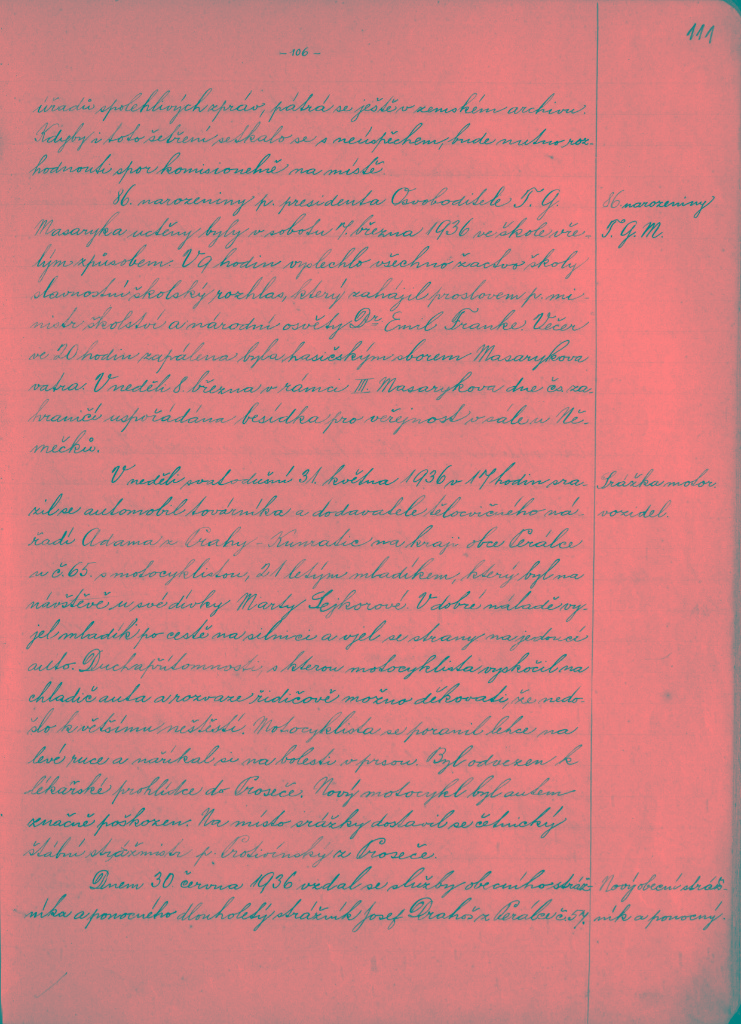 111
- 106 -
úřadů spolehlivých zpráv, pátrá se ještě v zemském archivu.
Kdyby i toto šetření setkalo se s neúspěchem, bude nutno roz-
hodnouti spor komisionelně na místě.
86. narozeniny p. presidenta Osvoboditele T. G.
Masaryka uctěny byly v sobotu 7. března 1936 ve škole vře-
lým způsobem. V 9 hodin vyslechlo všechno žactvo školy
slavnostní školský rozhlas, který zahájil proslovem p. mi-
nistr školství a národní osvěty Dr Emil Franke. Večer
ve 20 hodin zapálena byla hasičským sborem Masarykova
vatra. V neděli 8. března v rámci III. Masarykova dne čs. za-
hraničí uspořádána besídka pro veřejnost v sále u Ně-
mečků.
86. narozeniny
T. G. M.
V neděli svatodušní 31. května 1936 v 17 hodin sra-
zil se automobil továrníka a dodavatele tělocvičného ná-
řadí Adama z Prahy - Kunratic na kraji obce Perálce
u č. 65. s motocyklistou, 21 letým mladíkem, který byl na
návštěvě u své dívky Marty Lejkorové. V dobré náladě vy-
jel mladík po cestě na silnici a vjel se strany na jedoucí
auto. Duchapřítomnosti, s kterou motocyklista vyskočil na
chladič auta a rozvaze řidičově možno děkovati, že nedo-
šlo k většímu neštěstí. Motocyklista se poranil lehce na
levé ruce a naříkal si na bolesti v prsou. Byl odvezen k
lékařské prohlídce do Proseče. Nový motocykl byl autem
značně poškozen. Na místo srážky dostavil se četnický
štábní strážmistr p. Protivínský z Proseče.
Srážka motor.
vozidel.
Dnem 30. června 1936 vzdal se služby obecního stráž-
níka a ponocného dlouholetý strážník Josef Drahoš z Perálce č. 57.
Nový obecní stráž-
ník a ponocný.